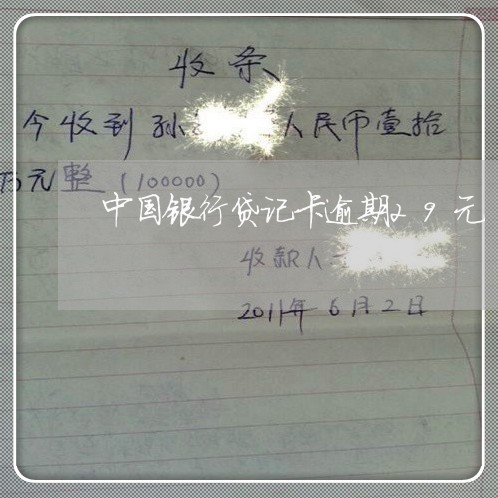 收条
今收到孙 人民币壹拾
万元整（100000）
中国银行贷记卡逾期29元
收款人
2011年6月2日